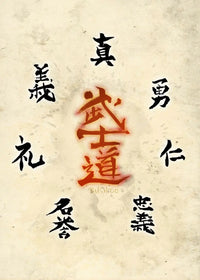 真
勇
仁
忠義
名誉
礼
義
武士道